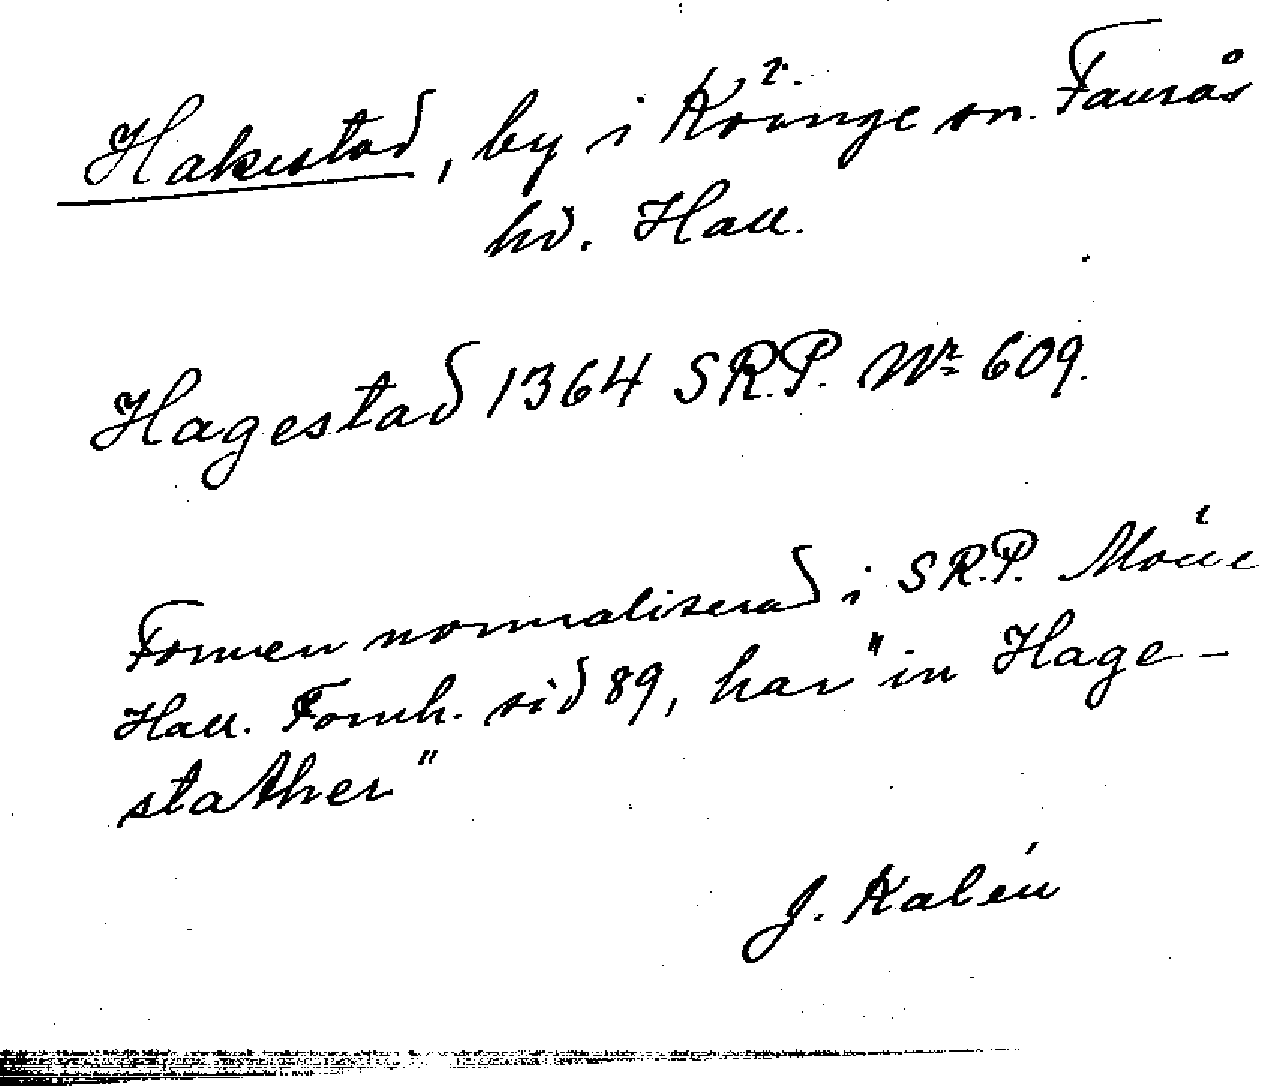 Hakestad, by i Köinge sn. Faurås
hd. Hall.
Hagestad 1364 SRP. Nr 609.
Formen normaliserad i SRP. Möller
Hall. Fornh. sid 89, har "in Hage-
stather"
J. Kalén